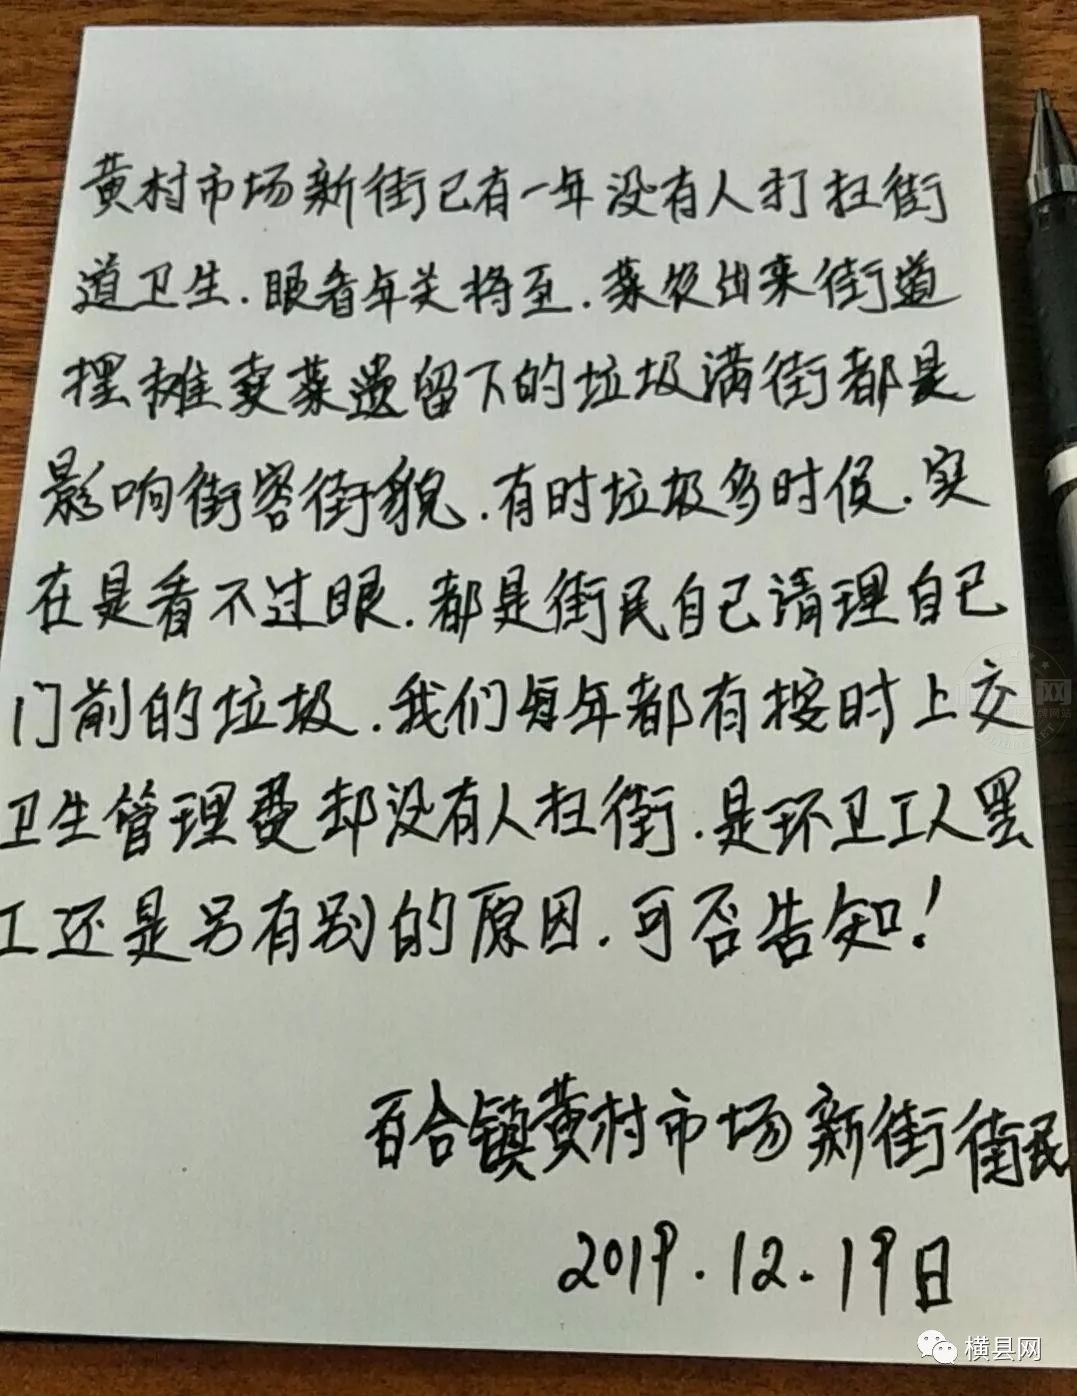 黄村市场新街已有一年没有人打扫街
道卫生.眼看年关将至.菜农出来街道
摆摊卖菜遗留下的垃圾满街都是
影响街容街貌.有时垃圾多时候.实
在是看不过眼.都是街民自己清理自己
门前的垃圾.我们每年都有按时上交
卫生管理费却没有人扫街.是环卫工人罢
工还是另有别的原因.可否告知!
百合镇黄村市场新街街民
2019.12.19日
横县网